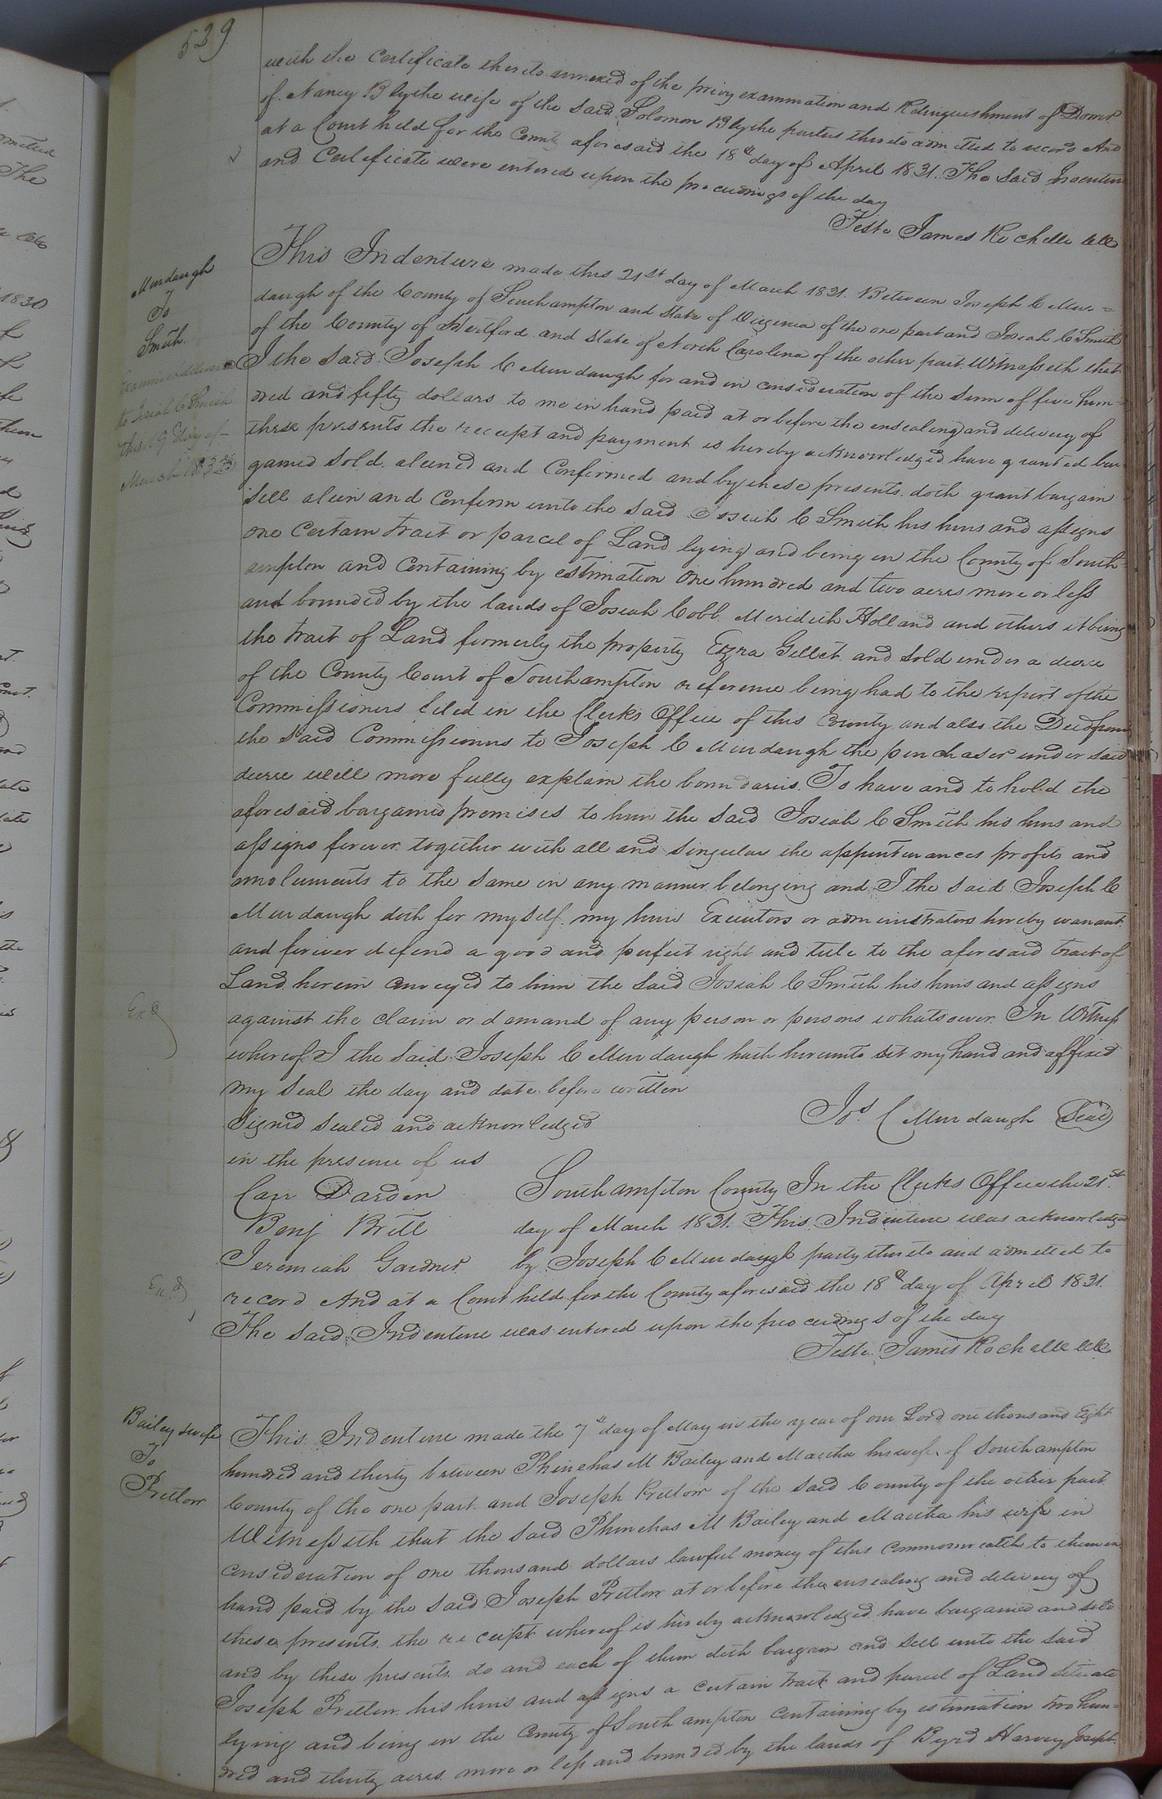 539
with the Certificate thereto annexed of the privy examination and Relinquishment of Dower
of Nancy Blythe wife of the said Solomon Blythe parties thereto admitted to record And
at a Court held for the County aforesaid the 18th day of April 1831. The said Indenture
and Certificate were entered upon the proceedings of the day
Teste James Rochelle Clk
Murdaugh
To
Smith
to Josiah C Smith
This Indenture made this 21st day of March 1831. Between Joseph C Mur=
daugh of the County of Southampton and State of Virginia of the one part and Josiah C Smith
of the County of Hertford and State of North Carolina of the other part. Witnesseth that
I the said Joseph C Murdaugh for and in consideration of the sum of five hun=
dred and fifty dollars to me in hand paid at or before the ensealing and delivery of
these presents the receipt and payment is hereby acknowledged have granted bar
gained sold aliened and Confirmed and by these presents doth grant bargain
sell alien and Confirm unto the said Josiah C Smith his heirs and assigns
one Certain tract or parcel of Land lying and being in the County of South=
ampton and Containing by estimation One hundred and two acres more or less
and bounded by the lands of Josiah Cobb Meridith Holland and others it being
the tract of Land formerly the property Ezra Gillet and sold under a decree
of the County Court of Southampton reference being had to the report of the
Commissioners filed in the Clerks Office of this County and also the Deed from
the said Commissioners to Joseph C Murdaugh the purchaser under said
decree will more fully explain the boundaries. To have and to hold the
aforesaid bargained premises to him the said Josiah C Smith his heirs and
assigns forever together with all and singular the appurtenances profits and
emoluments to the same in any manner belonging and I the said Joseph C
Murdaugh doth for myself my heirs Executors or administrators hereby warrant
and forever defend a good and perfect right and title to the aforesaid tract of
Land herein conveyed to him the said Josiah C Smith his heirs and assigns
against the claim or demand of any person or persons whatsoever. In Witness
whereof I the said Joseph C Murdaugh hath hereunto set my hand and affixed
my seal the day and date before written
Signed sealed and acknowledged
Jos C Murdaugh Seal
in the presence of us
Carr Darden
Benj Britt
Jeremiah Gardner
Southampton County In the Clerks Office the 21st
day of March 1831. This Indenture was acknowledged
by Joseph C Murdaugh party thereto and admitted to
record And at a Court held for the County aforesaid the 18th day of April 1831.
The said Indenture was entered upon the proceedings of the day
Teste James Rochelle Clk
Bailey & wife
To
Pretlow
This Indenture made the 7th day of May in the year of our Lord one thousand Eight
hundred and thirty between Phinehas M Bailey and Martha his wife of Southampton
County of the one part and Joseph Pretlow of the said County of the other part
Witnesseth that the said Phinehas M Bailey and Martha his wife in
consideration of one thousand dollars lawful money of this commonwealth to them in
hand paid by the said Joseph Pretlow at or before the ensealing and delivery of
these presents the receipt whereof is hereby acknowledged have bargained and sold
and by these presents do and each of them doth bargain and sell unto the said
Joseph Pretlow his heirs and assigns a certain tract and parcel of Land situate
lying and being in the County of Southampton Containing by estimation two hun=
dred and thirty acres more or less and bounded by the lands of Byrd Harvey Joseph